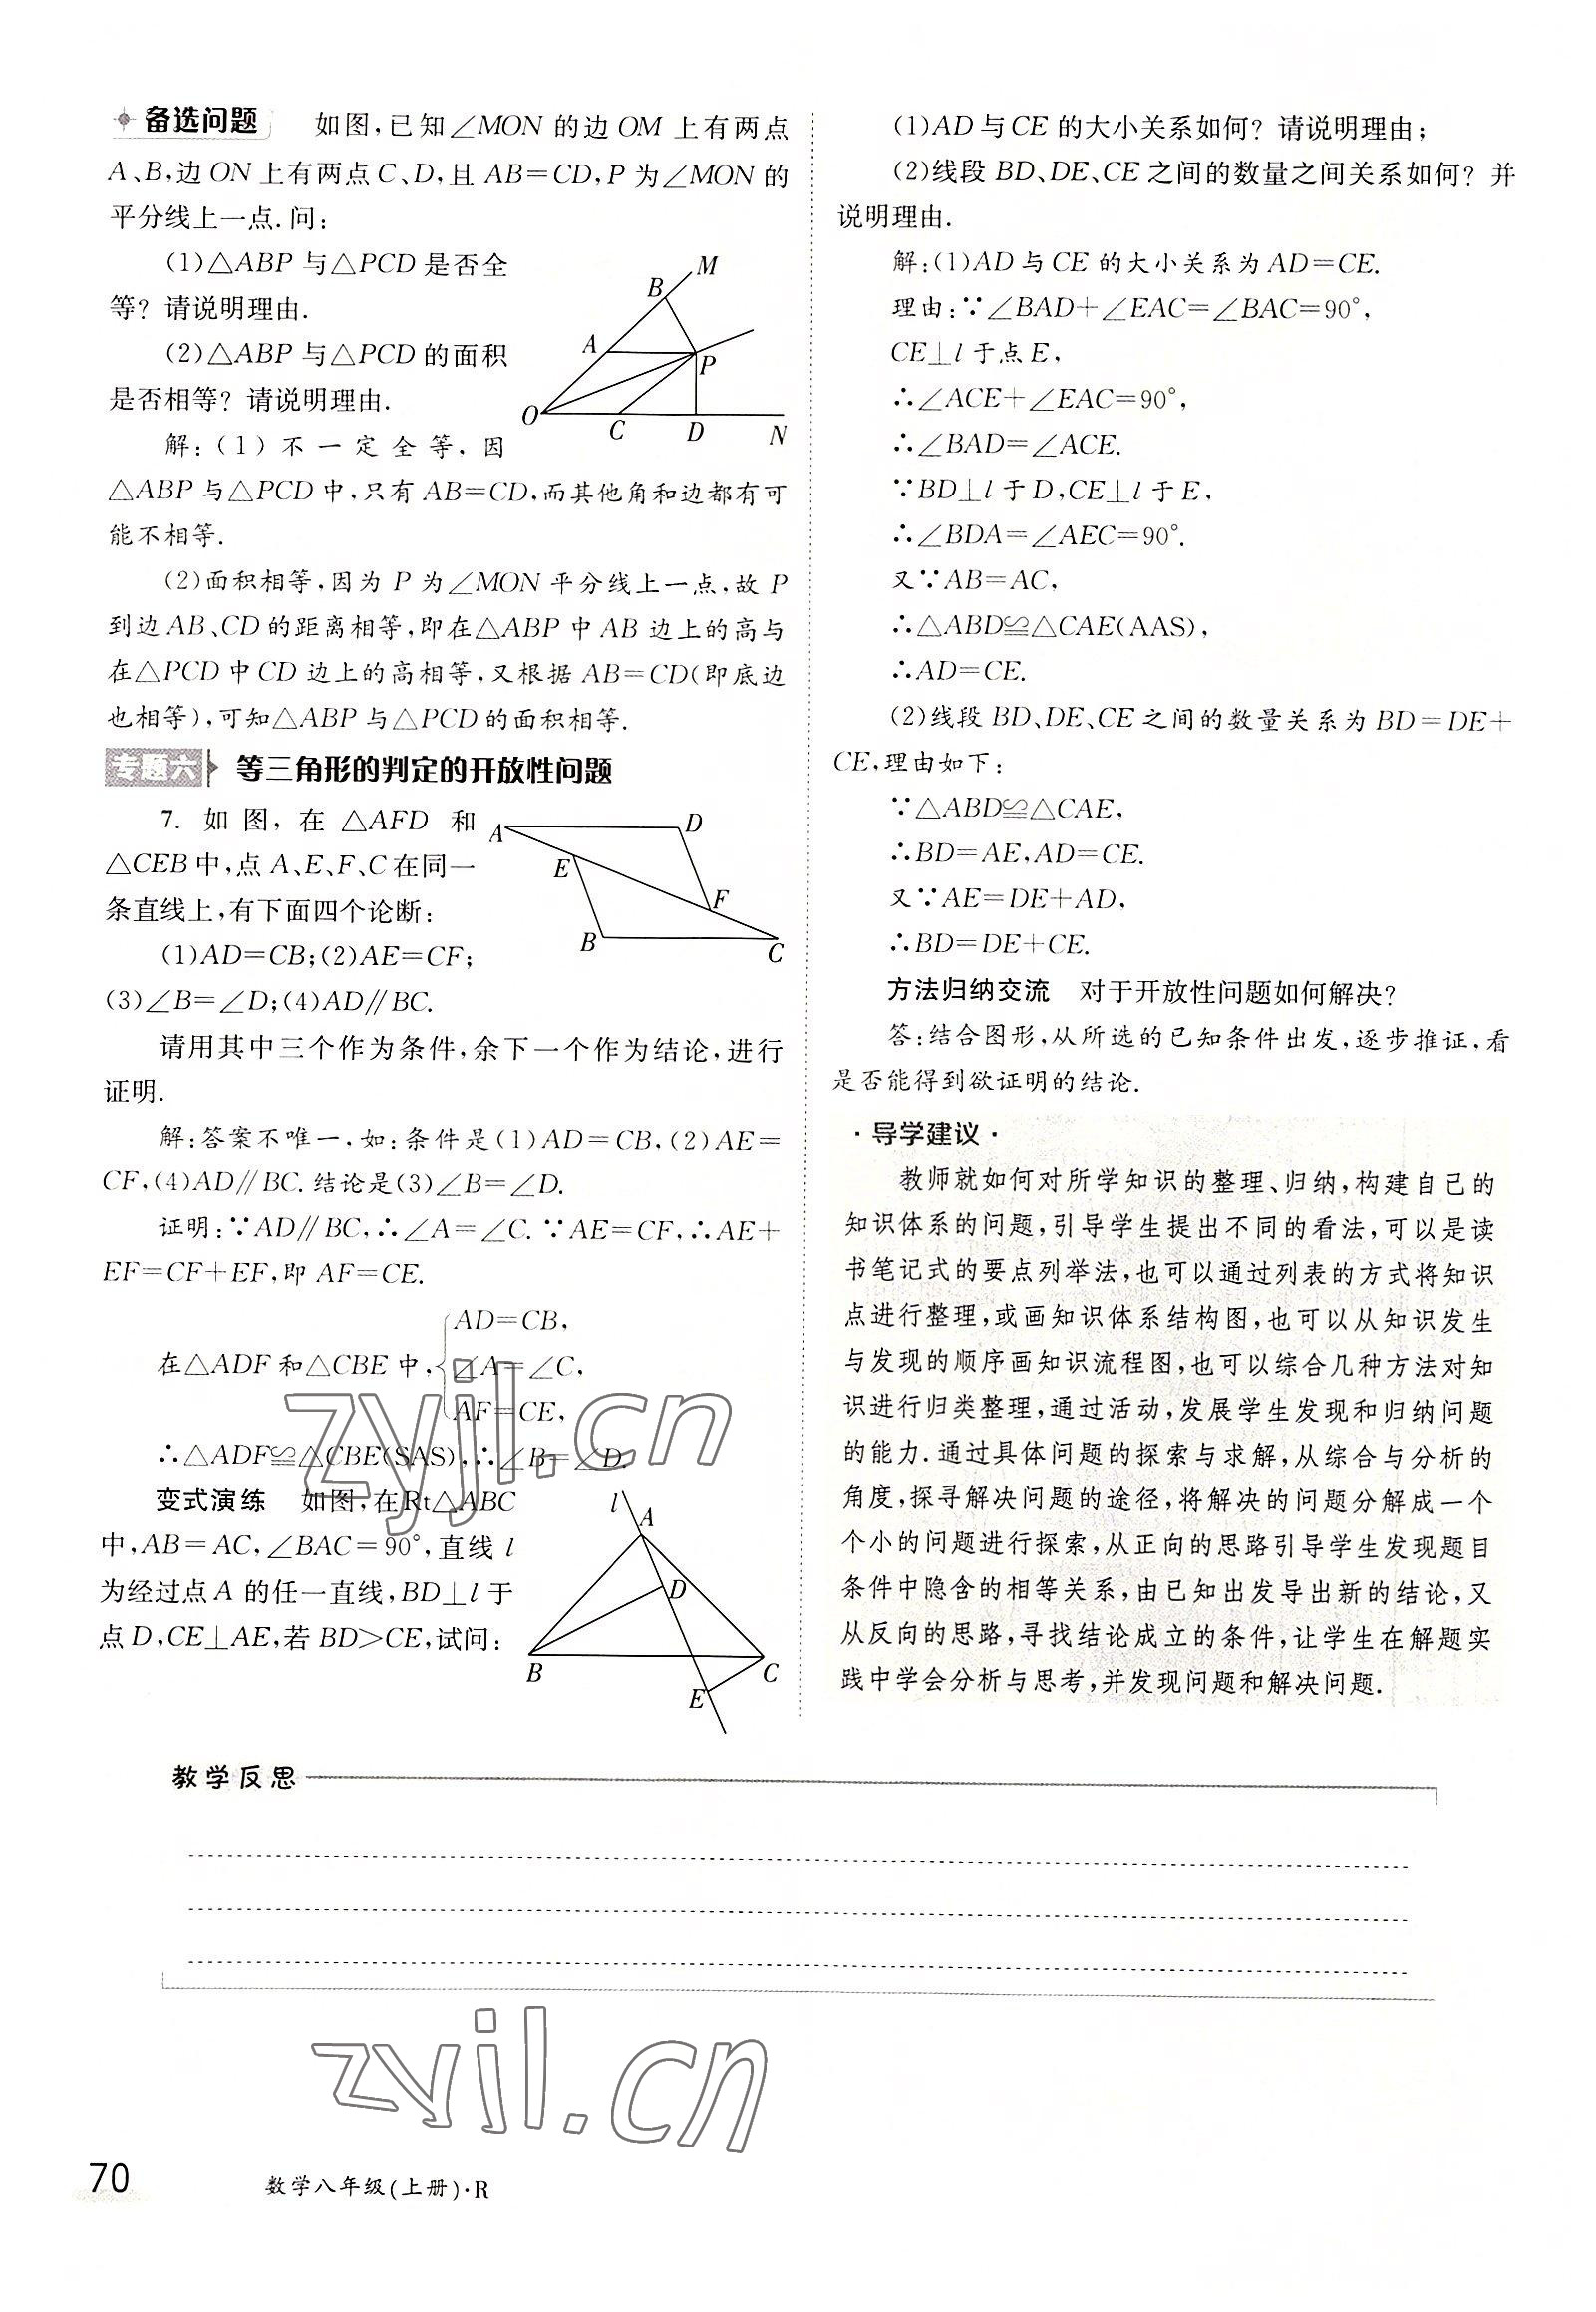 备选问题 如图,已知∠MON 的边 OM 上有两点
A、B,边 ON 上有两点 C、D,且 AB=CD,P 为∠MON 的
平分线上一点.问:
(1)△ABP 与△PCD 是否全
等? 请说明理由.
(2)△ABP 与△PCD 的面积
是否相等? 请说明理由.
M
B
A
P
O
C
D
N
解:(1) 不 一 定 全 等, 因
△ABP 与△PCD 中,只有 AB=CD,而其他角和边都有可
能不相等.
(2)面积相等,因为 P 为∠MON 平分线上一点,故 P
到边 AB、CD 的距离相等,即在△ABP 中 AB 边上的高与
在△PCD 中 CD 边上的高相等,又根据 AB=CD(即底边
也相等),可知△ABP 与△PCD 的面积相等.
专题六 等三角形的判定的开放性问题
7. 如 图, 在 △AFD 和
△CEB 中,点 A、E、F、C 在同一
条直线上,有下面四个论断:
(1)AD=CB;(2)AE=CF;
(3)∠B=∠D;(4)AD∥BC.
A
D
E
F
B
C
请用其中三个作为条件,余下一个作为结论,进行
证明.
解:答案不唯一,如:条件是(1)AD=CB,(2)AE=
CF,(4)AD∥BC.结论是(3)∠B=∠D.
证明:∵AD∥BC,∴∠A=∠C.∵AE=CF,∴AE+
EF=CF+EF,即 AF=CE.
AD=CB,
在△ADF 和△CBE 中,∠A=∠C,
AF=CE,
∴△ADF≌△CBE(SAS),∴∠B=∠D.
变式演练 如图,在Rt△ABC
中,AB=AC,∠BAC=90°,直线 l
为经过点 A 的任一直线,BD⊥l 于
点 D,CE⊥AE,若 BD>CE,试问:
l
A
D
B
C
E
(1)AD 与 CE 的大小关系如何? 请说明理由;
(2)线段 BD、DE、CE 之间的数量之间关系如何? 并
说明理由.
解:(1)AD 与 CE 的大小关系为 AD=CE.
理由:∵∠BAD+∠EAC=∠BAC=90°,
CE⊥l 于点 E,
∴∠ACE+∠EAC=90°,
∴∠BAD=∠ACE.
∵BD⊥l 于 D,CE⊥l 于 E,
∴∠BDA=∠AEC=90°.
又∵AB=AC,
∴△ABD≌△CAE(AAS),
∴AD=CE.
(2)线段 BD、DE、CE 之间的数量关系为 BD=DE+
CE,理由如下:
∵△ABD≌△CAE,
∴BD=AE,AD=CE.
又∵AE=DE+AD,
∴BD=DE+CE.
方法归纳交流 对于开放性问题如何解决?
答:结合图形,从所选的已知条件出发,逐步推证,看
是否能得到欲证明的结论.
·导学建议·
教师就如何对所学知识的整理、归纳,构建自己的
知识体系的问题,引导学生提出不同的看法,可以是读
书笔记式的要点列举法,也可以通过列表的方式将知识
点进行整理,或画知识体系结构图,也可以从知识发生
与发现的顺序画知识流程图,也可以综合几种方法对知
识进行归类整理,通过活动,发展学生发现和归纳问题
的能力.通过具体问题的探索与求解,从综合与分析的
角度,探寻解决问题的途径,将解决的问题分解成一个
个小的问题进行探索,从正向的思路引导学生发现题目
条件中隐含的相等关系,由已知出发导出新的结论,又
从反向的思路,寻找结论成立的条件,让学生在解题实
践中学会分析与思考,并发现问题和解决问题.
教学反思
zyjl.cn
zyjl.cn
70
数学八年级(上册)·R